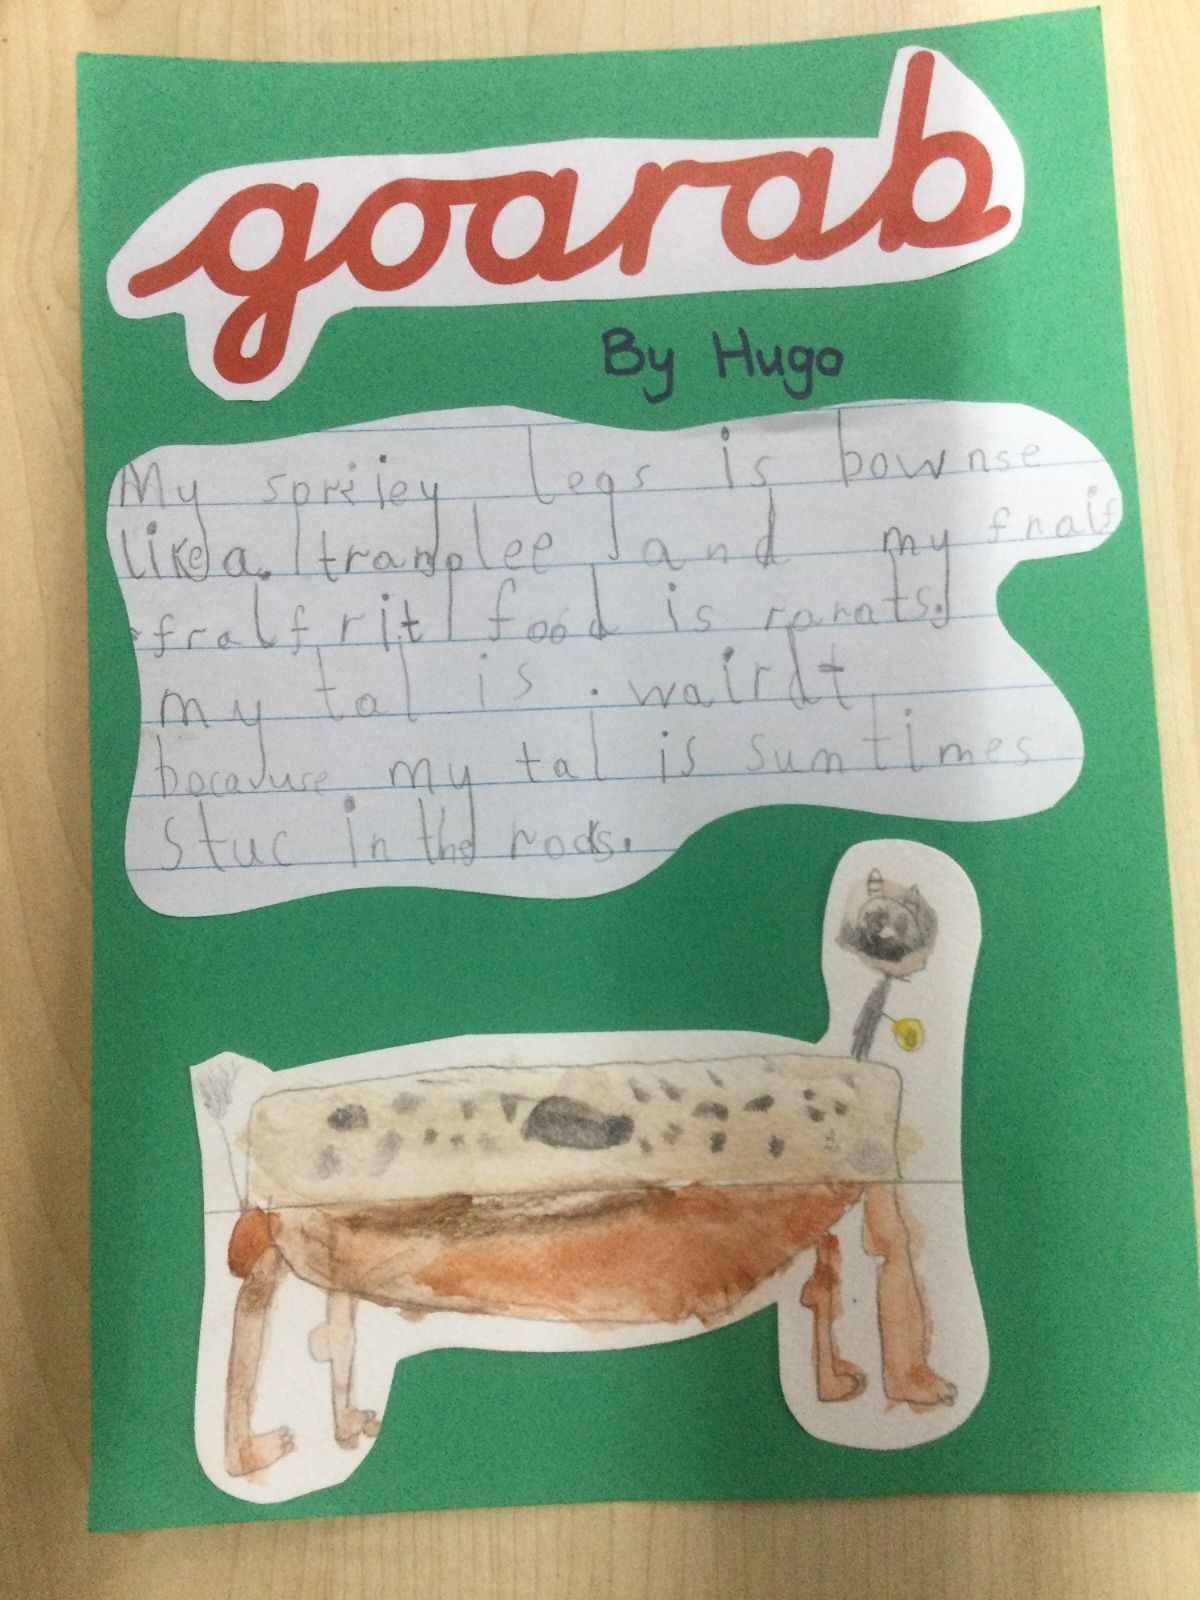 goarab
By Hugo
My spriiey legs is bownse
like a. tranplee and my fraif
fralf rit food is rarats.
my tal is . wairdt
becauuse my tal is sumtimes
stuc in the rocks.